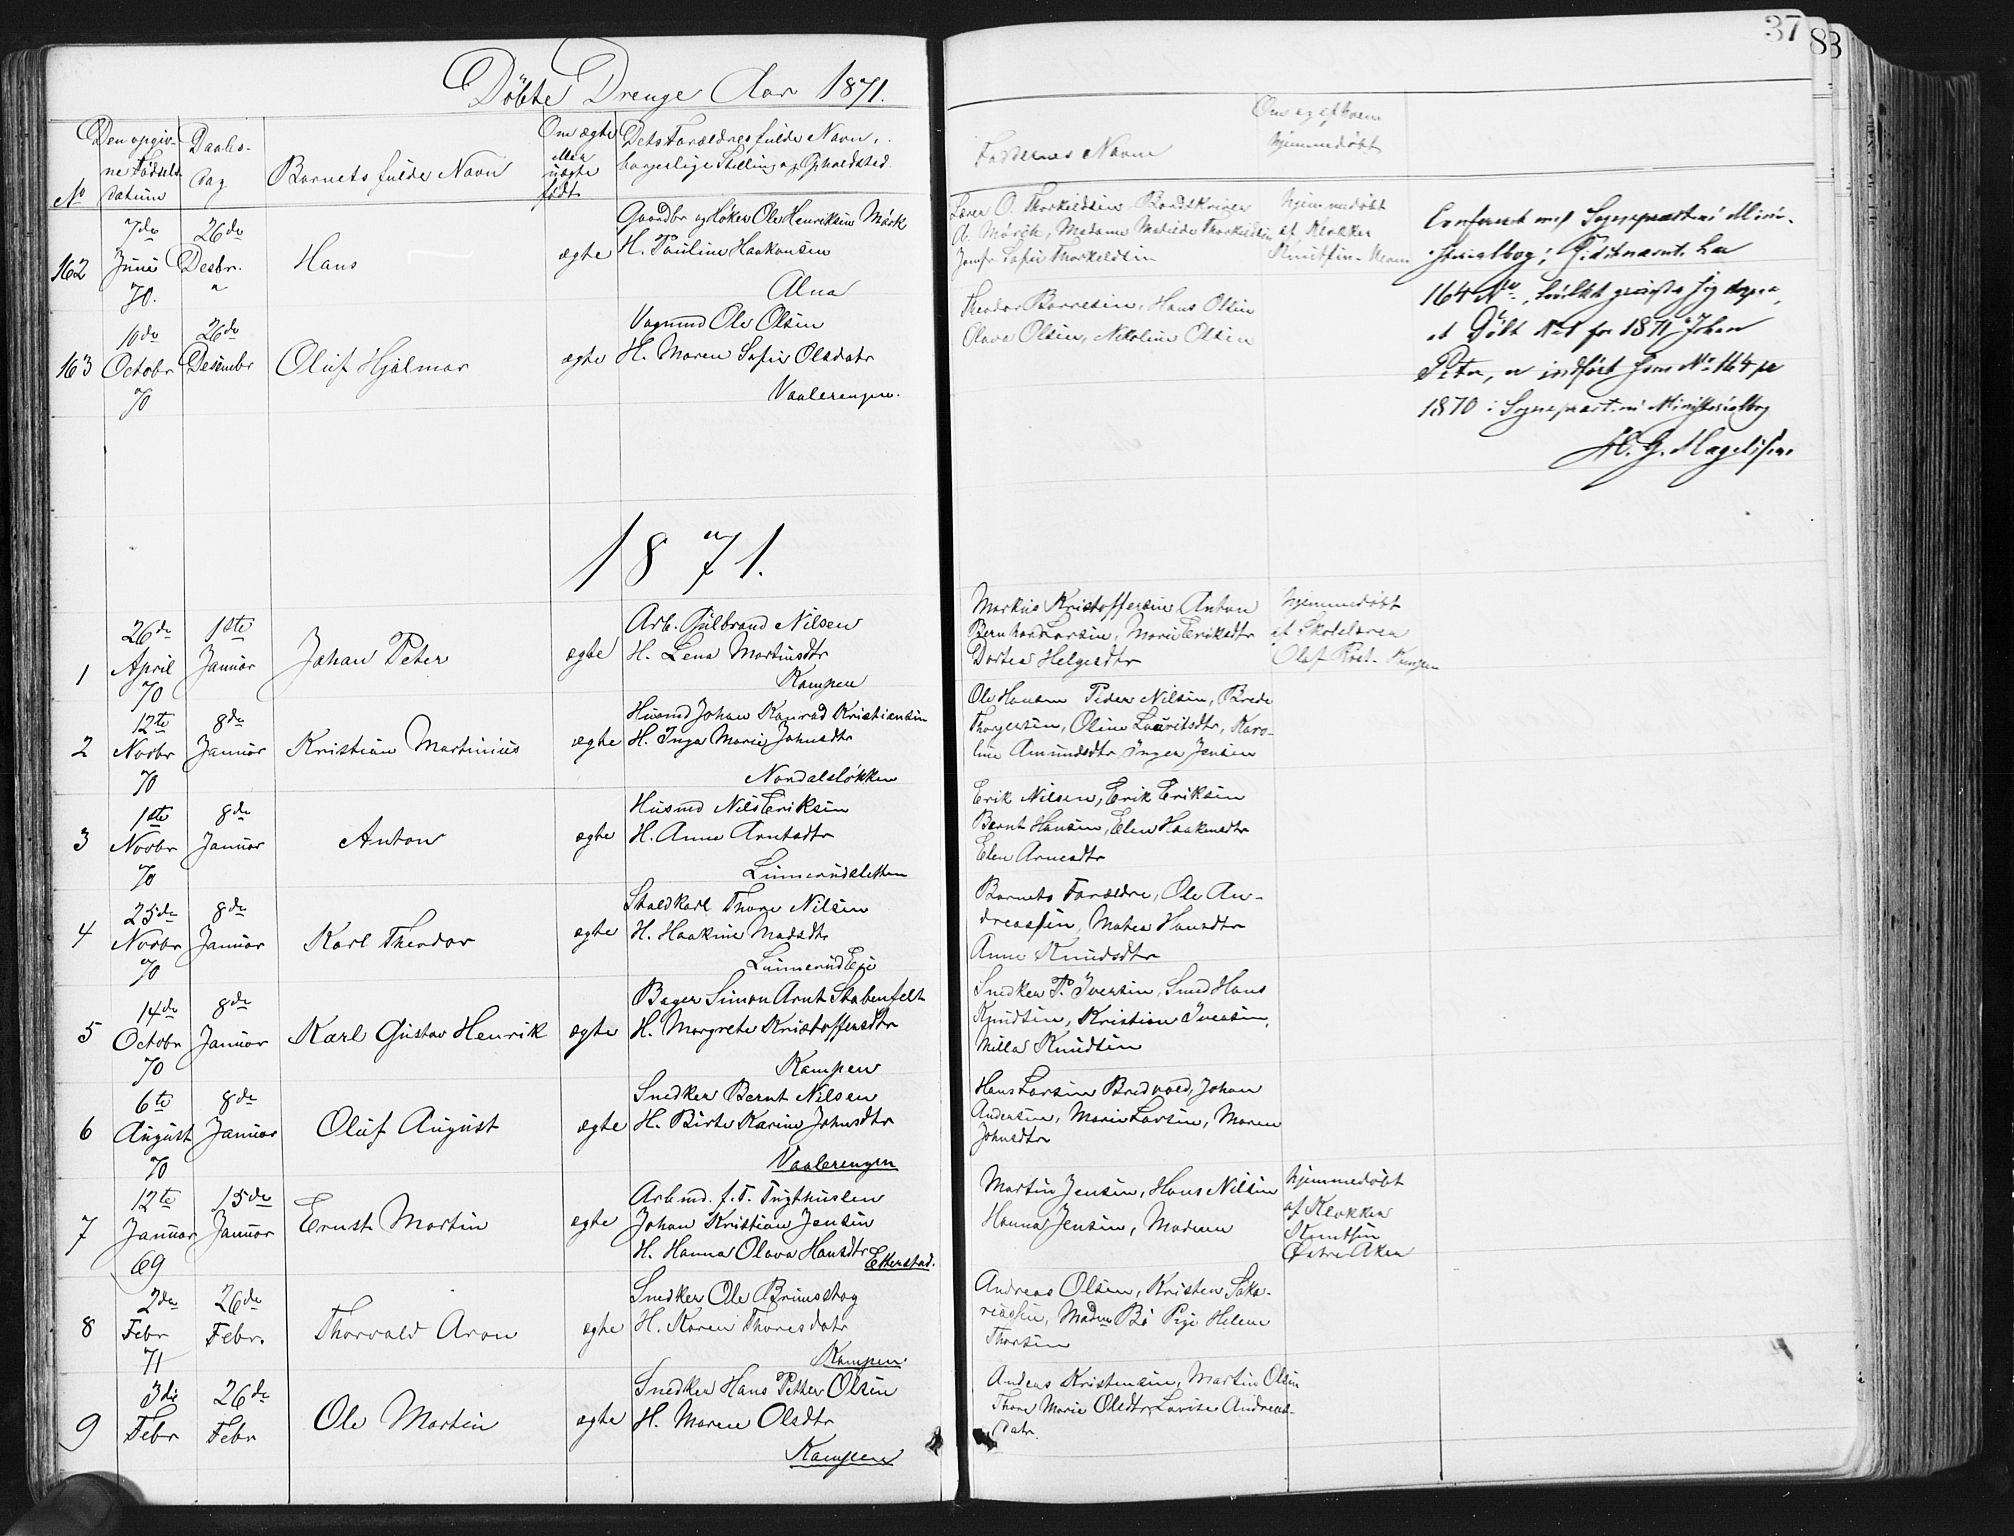 37
83
Döbte Drenge Aar 1871.
No
Den opgiv-
ne Födsels
datum
Daabs-
dag
Barnets fulde Navn
Om ægte
eller
uægte
födt
Dets Forældres fulde Navn,
borgerlige Stilling og Opholdsted
Faddernes Navne
Om og af hvem
hjemmedöbt
162
7de
Juni
70.
26de
Desbr.
"
Hans
ægte
Gaardbr og Höker Ole Henriksen Mörk
H. Pauline Haakonsen
Alna
Lærer O. Thorkildsen
Mörck, Madame Thorkildsen
Jomfr Sofie Thorkeldsen
hjemmedöbt
af Klokker
Knutsen
163
10de
Octobr
70
26de
Desembr
Oluf Hjalmar
ægte
Vognmd Ole Olsen
H. Maren Sofie Olsdatr
Vaalerengen.
Theodor Borresen, Hans Olsen
Olava Olsen, Nikoline Olsen
Conferert med Sognepræstens Mini-
sterialbog;
164 No, hvilket
at Döbt No 1 for 1871 Johan
Peter, er indfört som No 164 pr
1870 i Sognepræstens Ministerialbog
1871.
1
26de
April
70
1ste
Januar
Johan Peter
ægte
Arb. Gulbrand Nilsen
H. Lena Martinsdtr
Kampen
Markus Kristoffersen, Anton
Bernhard Larsen, Marie Eriksdtr
Dortea Helgesdtr
hjemmedöbt
af Skolelærer
Olaf Kampen
2
12te
Novbr
70
8de
Januar
Kristian Martinius
ægte
Husmd Johan Konrad Kristiansen
H. Inga Marie Johnsdtr
Nordalslökken
Ole Hansen Peder Nilsen, Brede
Thorgersen, Oline Lauritsdtr, Karo-
line Amundsdtr, Inger Jensen
3
1ste
Novbr
70
8de
Januar
Anton
ægte
Husmd Nils Eriksen
H. Anne Arntsdtr
Linnerudsletten
Erik Nilsen, Erik Eriksen
Bernt Hansen, Elen Haakensdtr
Elen Arnesdtr
4
25de
Novbr
70
8de
Januar
Karl Theodor
ægte
Staldkarl Thore Nilsen
H. Haakine Madsdtr
Linnerud Eje
Barnets Forældre, Ole An-
dreassen, Matea Hansdtr
Anne Knudsdtr
5
14de
Octobr
70
8de
Januar
Karl Gustav Henrik
ægte
Bager Simon Arnt Stabenfelt
H. Margrete Kristoffersdtr
Kampen
Snedker P. Iversen, Smed Hans
Knudsen, Kristian Iversen,
Milla Knudsen
6
6te
August
70
8de
Januar
Oluf August
ægte
Snedker Bernt Nilsen
H. Birte Karine Johnsdtr
Vaalerengen
Hans Larsen Bredvold, Johan
Andersen, Marie Larsen, Maren
Johnsdtr
7
12te
Januar
69
15de
Januar
Ernst Martin
ægte
Arbmd. f. T. Tugthuslem
Johan Kristian Jensen
H. Hanna Olava Hansdtr Etterstad.
Martin Jensen, Hans Nilsen
Hanna Jensen, Moderen
hjemmedöbt
af Klokker
Knutsen
Östre Aker
8
2den
Febr
71
26de
Febr.
Thorvald Aron
ægte
Snedker Ole Brunsstog
H. Karen Thoresdatr
Kampen.
Andreas Olsen, Kristen Saka-
reassen, Madm Bö Pige Helene
Thorsen
9
3die
Febr
26de
Febr
Ole Martin
ægte
Snedker Hans Petter Olsen
H. Maren Olsdtr
Kampen
Andreas Kristensen, Martin Olsen
Thore Marie Olsdtr, Lovise Andreas-
datr.